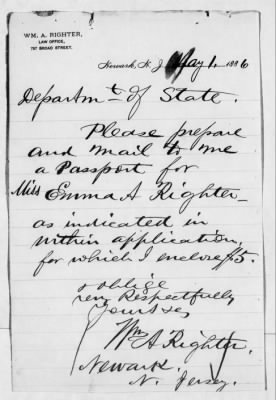 WM. A. RIGHTER,
LAW OFFICE,
757 BROAD STREET.
Newark, N. J. May 1, 1886
Departmt of State.
Please prepare
and mail to me
a Passport for
Miss Emma A Righter
as indicated in
within application,
for which I enclose $5.
& oblige
very Respectfully
Yours &c
Wm A Righter,
Newark.
N. Jersey.